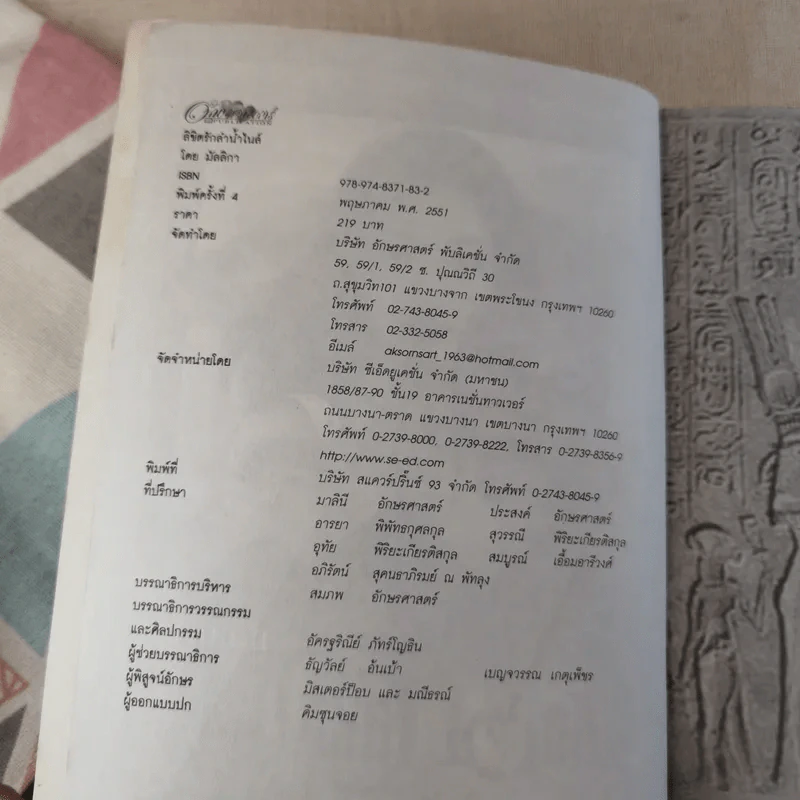 ลิขิตรักลำน้ำไนล์
โดย มัลลิกา
ISBN 978-974-8371-83-2
พิมพ์ครั้งที่ 4 พฤษภาคม พ.ศ. 2551
ราคา 219 บาท
จัดทำโดย บริษัท อักษรศาสตร์ พับลิเคชั่น จำกัด
59, 59/1, 59/2 ซ. ปุณณวิถี 30
ถ.สุขุมวิท101 แขวงบางจาก เขตพระโขนง กรุงเทพฯ 10260
โทรศัพท์ 02-743-8045-9
โทรสาร 02-332-5058
อีเมล์ aksornsart_1963@hotmail.com
จัดจำหน่ายโดย บริษัท ซีเอ็ดยูเคชั่น จำกัด (มหาชน)
1858/87-90 ชั้น19 อาคารเนชั่นทาวเวอร์
ถนนบางนา-ตราด แขวงบางนา เขตบางนา กรุงเทพฯ 10260
โทรศัพท์ 0-2739-8000, 0-2739-8222, โทรสาร 0-2739-8356-9
http://www.se-ed.com
พิมพ์ที่ บริษัท สแควร์ปริ๊นซ์ 93 จำกัด โทรศัพท์ 0-2743-8045-9
ที่ปรึกษา มาลินี อักษรศาสตร์ ประสงค์ อักษรศาสตร์
อารยา พิพัทธกุศลกุล สุวรรณี พิริยะเกียรติสกุล
อุทัย พิริยะเกียรติสกุล สมบูรณ์ เอื้อมอารีวงศ์
อภิรัตน์ สุคนธาภิรมย์ ณ พัทลุง
บรรณาธิการบริหาร สมภพ อักษรศาสตร์
บรรณาธิการวรรณกรรม
และศิลปกรรม อัครฐริณีย์ ภัทร์โญธิน
ผู้ช่วยบรรณาธิการ ธัญวัลย์ อ้นเบ้า เบญจวรรณ เกตุเพ็ชร
ผู้พิสูจน์อักษร มิสเตอร์ป๊อบ และ มณีธรณ์
ผู้ออกแบบปก คิมซุนจอย